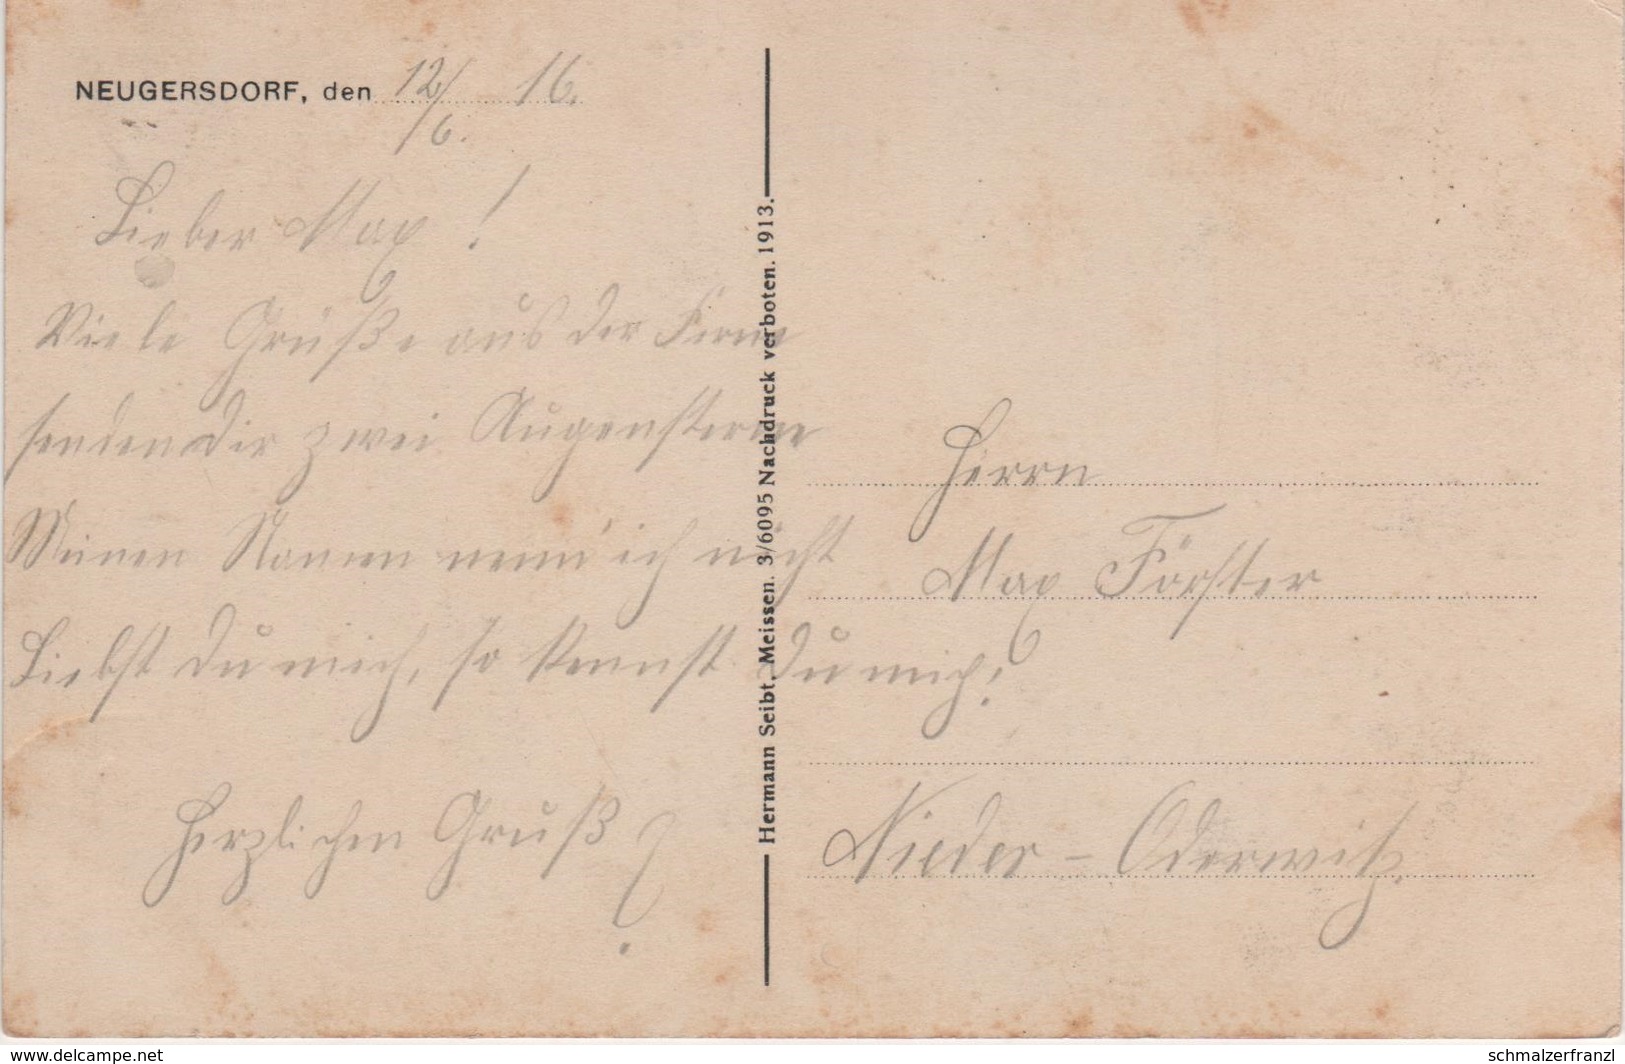 NEUGERSDORF, den 12/6. 16.
Lieber Max!
Viele Grüße aus der Ferne
senden Dir zwei Augensterne
Meinen Namen nenn' ich nicht
Liebst Du mich, so kennst Du mich!
Herzlichen Gruß
?
Hermann Seibt, Meissen. 3/6095 Nachdruck verboten. 1913.
Herrn
Max Förster
Nieder-Oderwitz.
www.delcampe.net
schmalzerfranzl